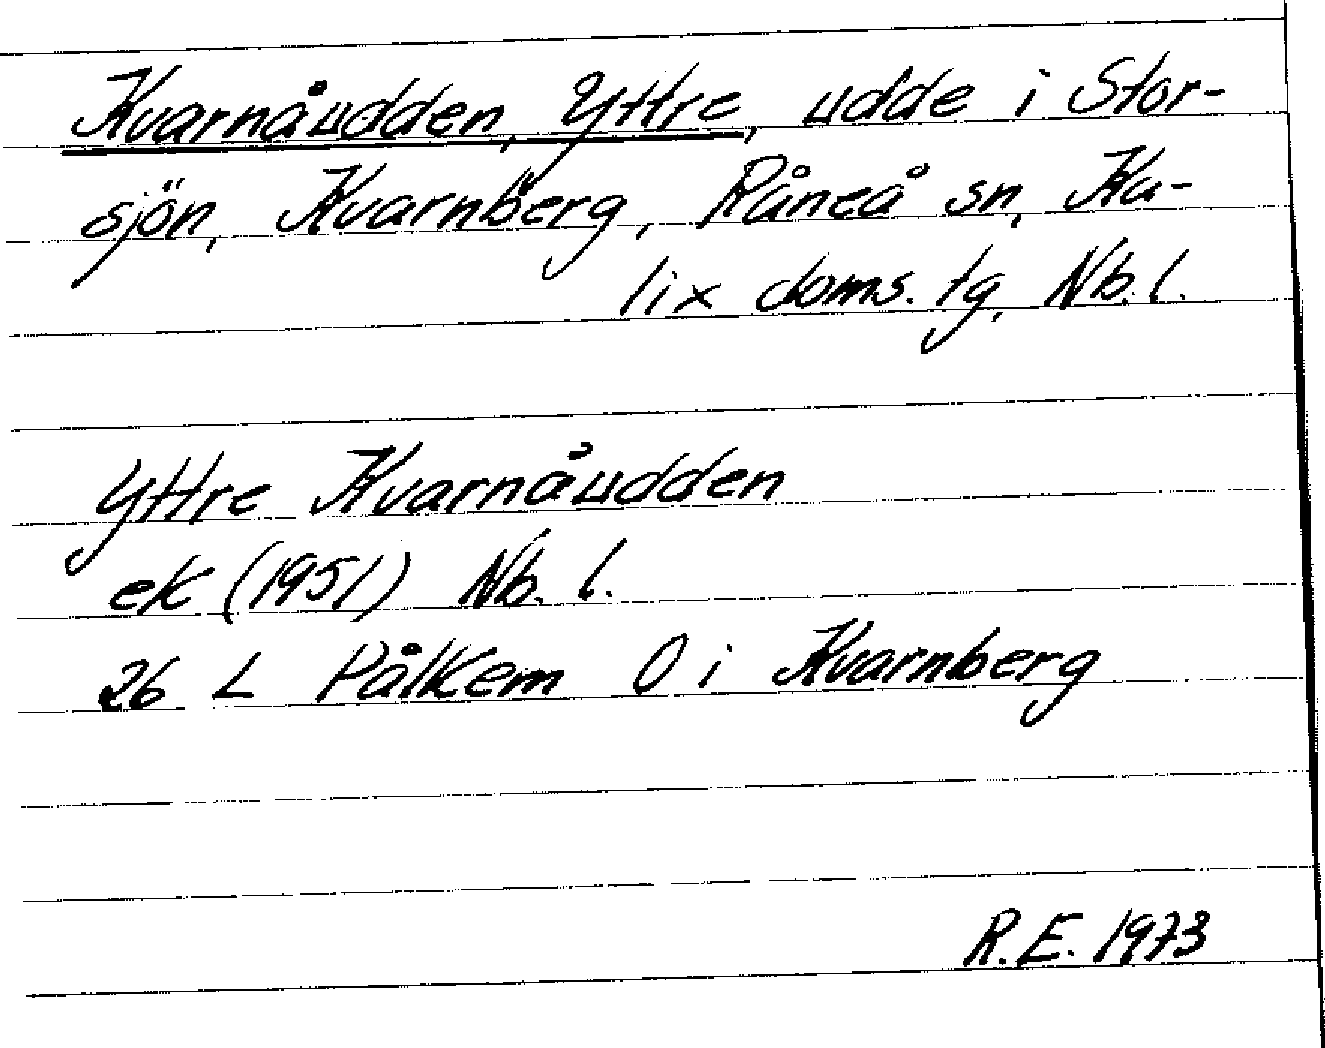 Kvarnåudden, Yttre, udde i Stor-
sjön, Kvarnberg, Råneå sn, Ka-
lix doms. tg, Nb. l.
Yttre Kvarnåudden
ek (1951) Nb. l.
26 L Pålkem O i Kvarnberg
R.E. 1973